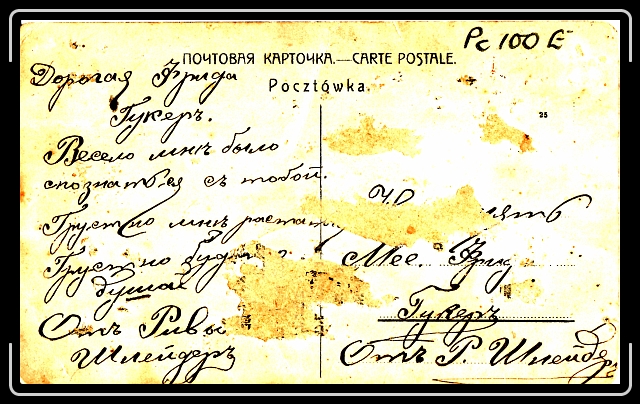 Pc 100 E
ПОЧТОВАЯ КАРТОЧКА.—CARTE POSTALE.
Pocztówka.
25
Дорогая Фрида
Гукеръ.
Весело мнѣ было
спознаться съ тобой.
Грустно мнѣ растать
Грустно
Отъ Ривы
Шлейдеръ
Mee. Фрид
Гукеръ
Отъ Р. Шлейдеръ